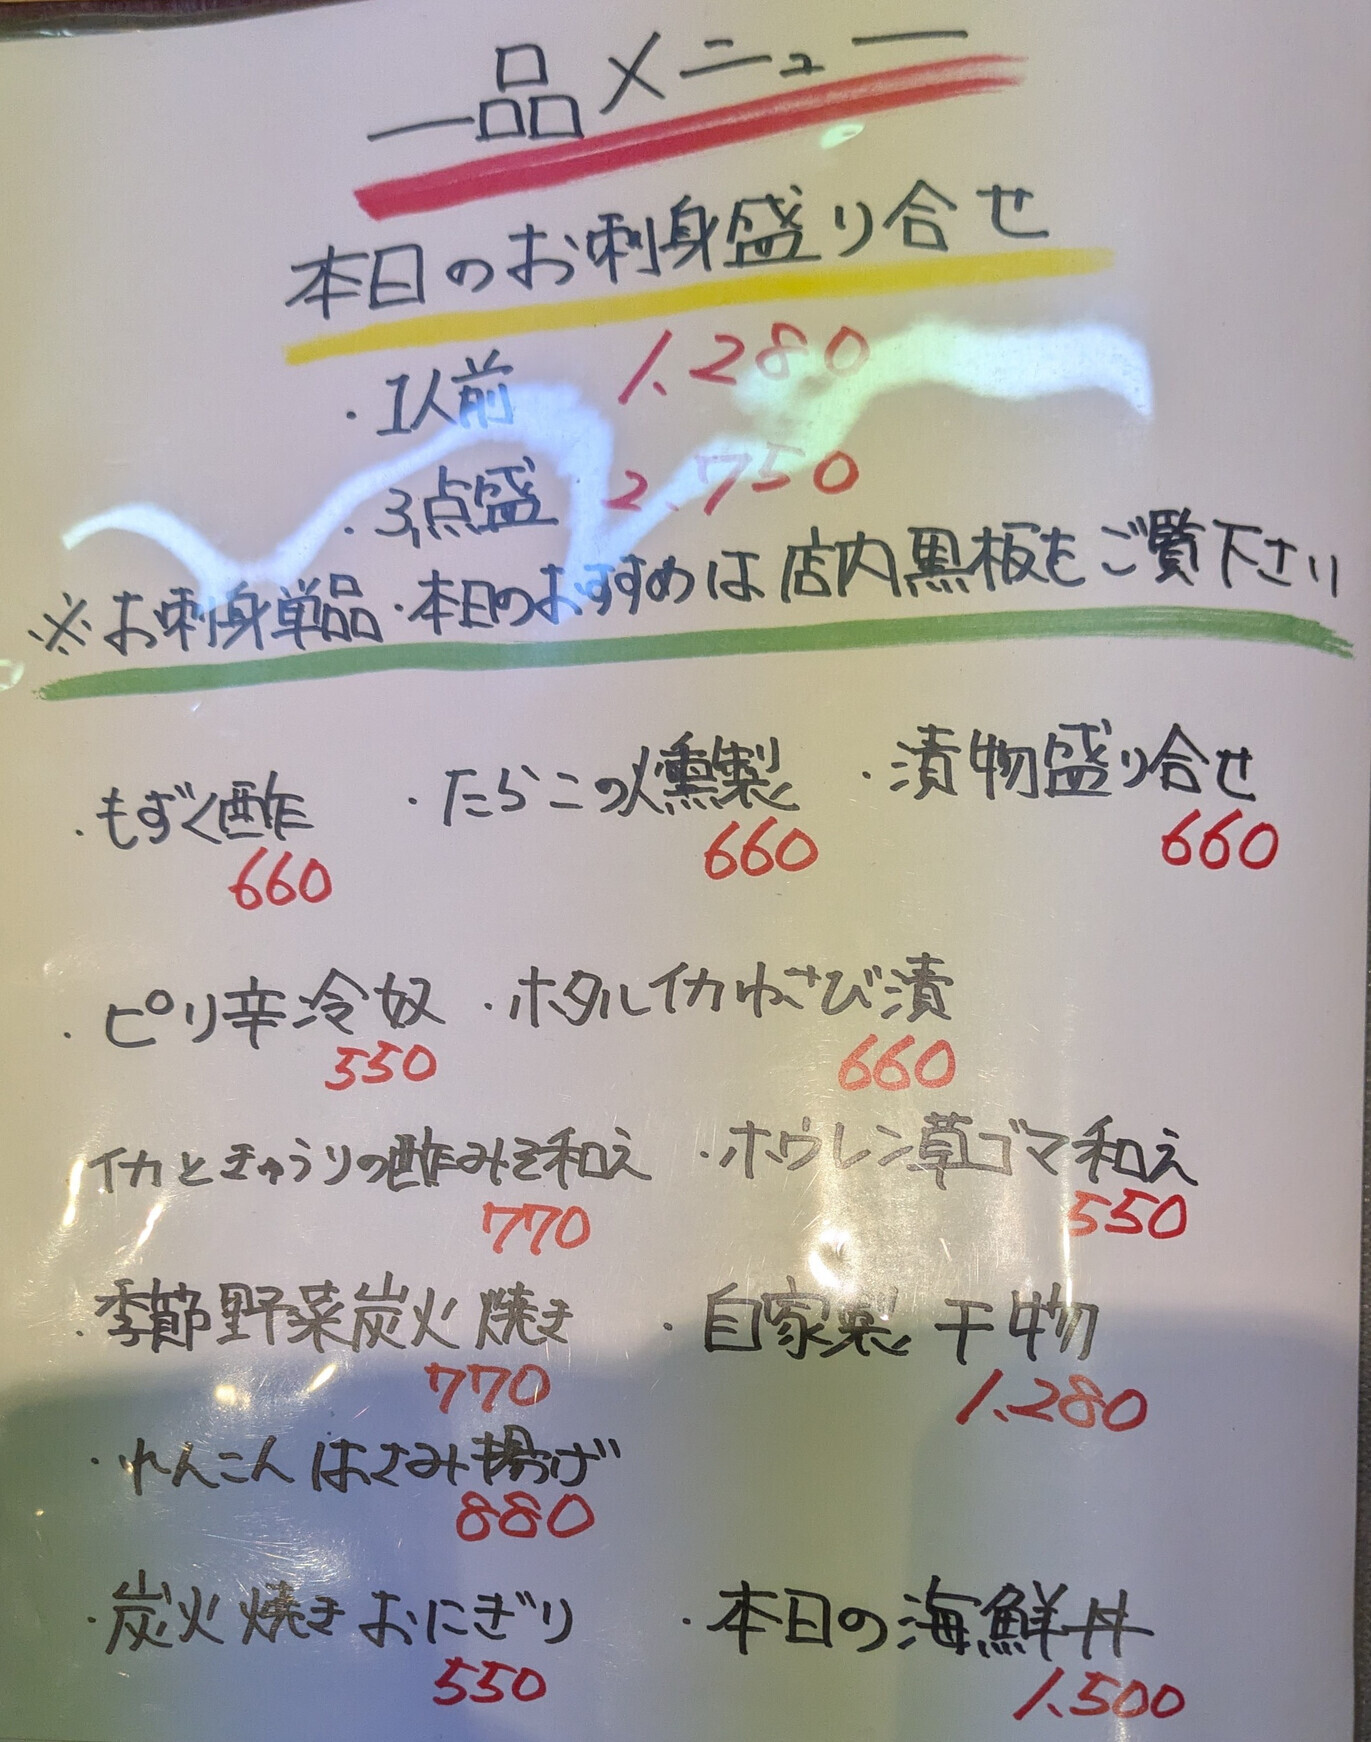 一品メニュー
本日のお刺身盛り合せ
・1人前 1.280
・3点盛 2.750
※お刺身単品・本日のおすすめは店内黒板をご覧下さい
・もずく酢 ・たらこの燻製 ・漬物盛り合せ
660 660 660
・ピリ辛冷奴 ・ホタルイカわさび漬
550 660
イカときゅうりの酢みそ和え ・ホウレン草ゴマ和え
770 550
・季節野菜炭火焼き ・自家製干物
770 1.280
・れんこんはさみ揚げ
880
・炭火焼きおにぎり ・本日の海鮮丼
550 1.500